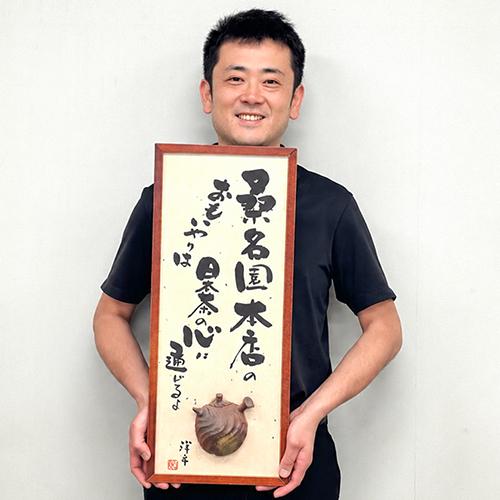 桑名園本店の
おもいやりは
日本茶の心に
通じるよ